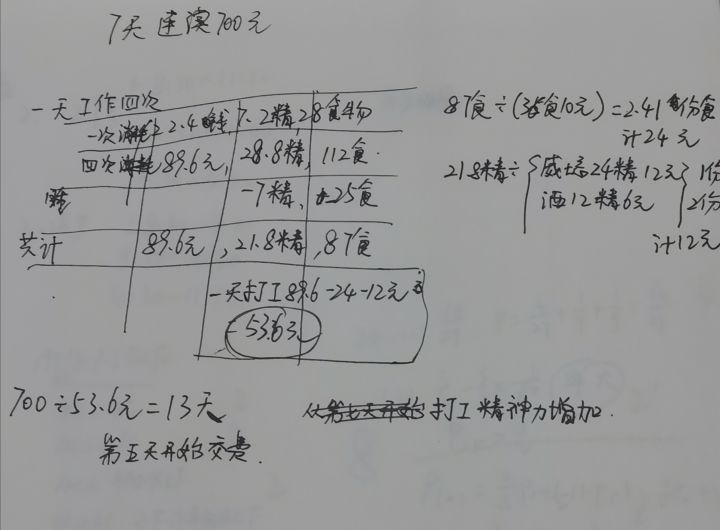 7天 速溃700元
一天工作四次
一次消耗 22.4, 7.2精, 28食物
四次消耗 89.6元, 28.8精, 112食
睡 -7精, -25食
共计 89.6元, 21.8精, 87食
一天打工89.6-24-12元
=53.6元
87食÷(36食10元)=2.41份食
计24元
21.8精÷{威士忌24精12元} 1份
酒12精6元 2份
计12元
700÷53.6元=13天
第五天开始交费.
从第七天开始打工精神力增加.